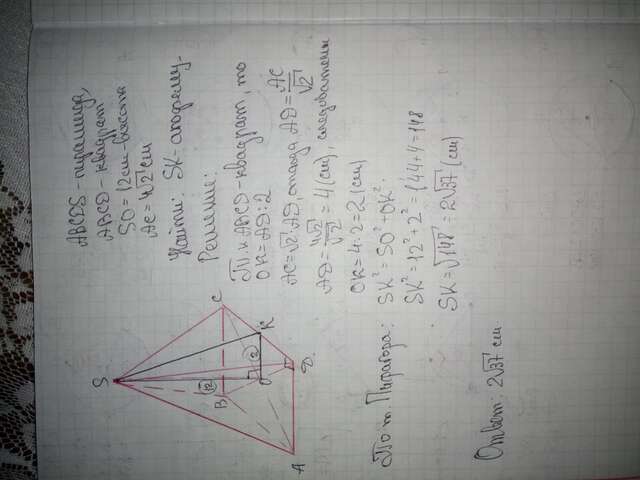 ABCDS - пирамида,
ABCD - квадрат
SO = 12 см - высота
AC = 4√2 см
Найти: SK - апофему.
Решение:
Т.к ABCD - квадрат, то
OK = AD : 2
AC = √2 AD, откуда AD = AC/√2
AD = 4√2/√2 = 4 (см), следовательно
OK = 4 : 2 = 2 (см)
По т. Пифагора:
SK² = SO² + OK²
SK² = 12² + 2² = 144 + 4 = 148
SK = √148 = 2√37 (см)
Ответ: 2√37 см
S
12
B
C
O
2
K
D
A